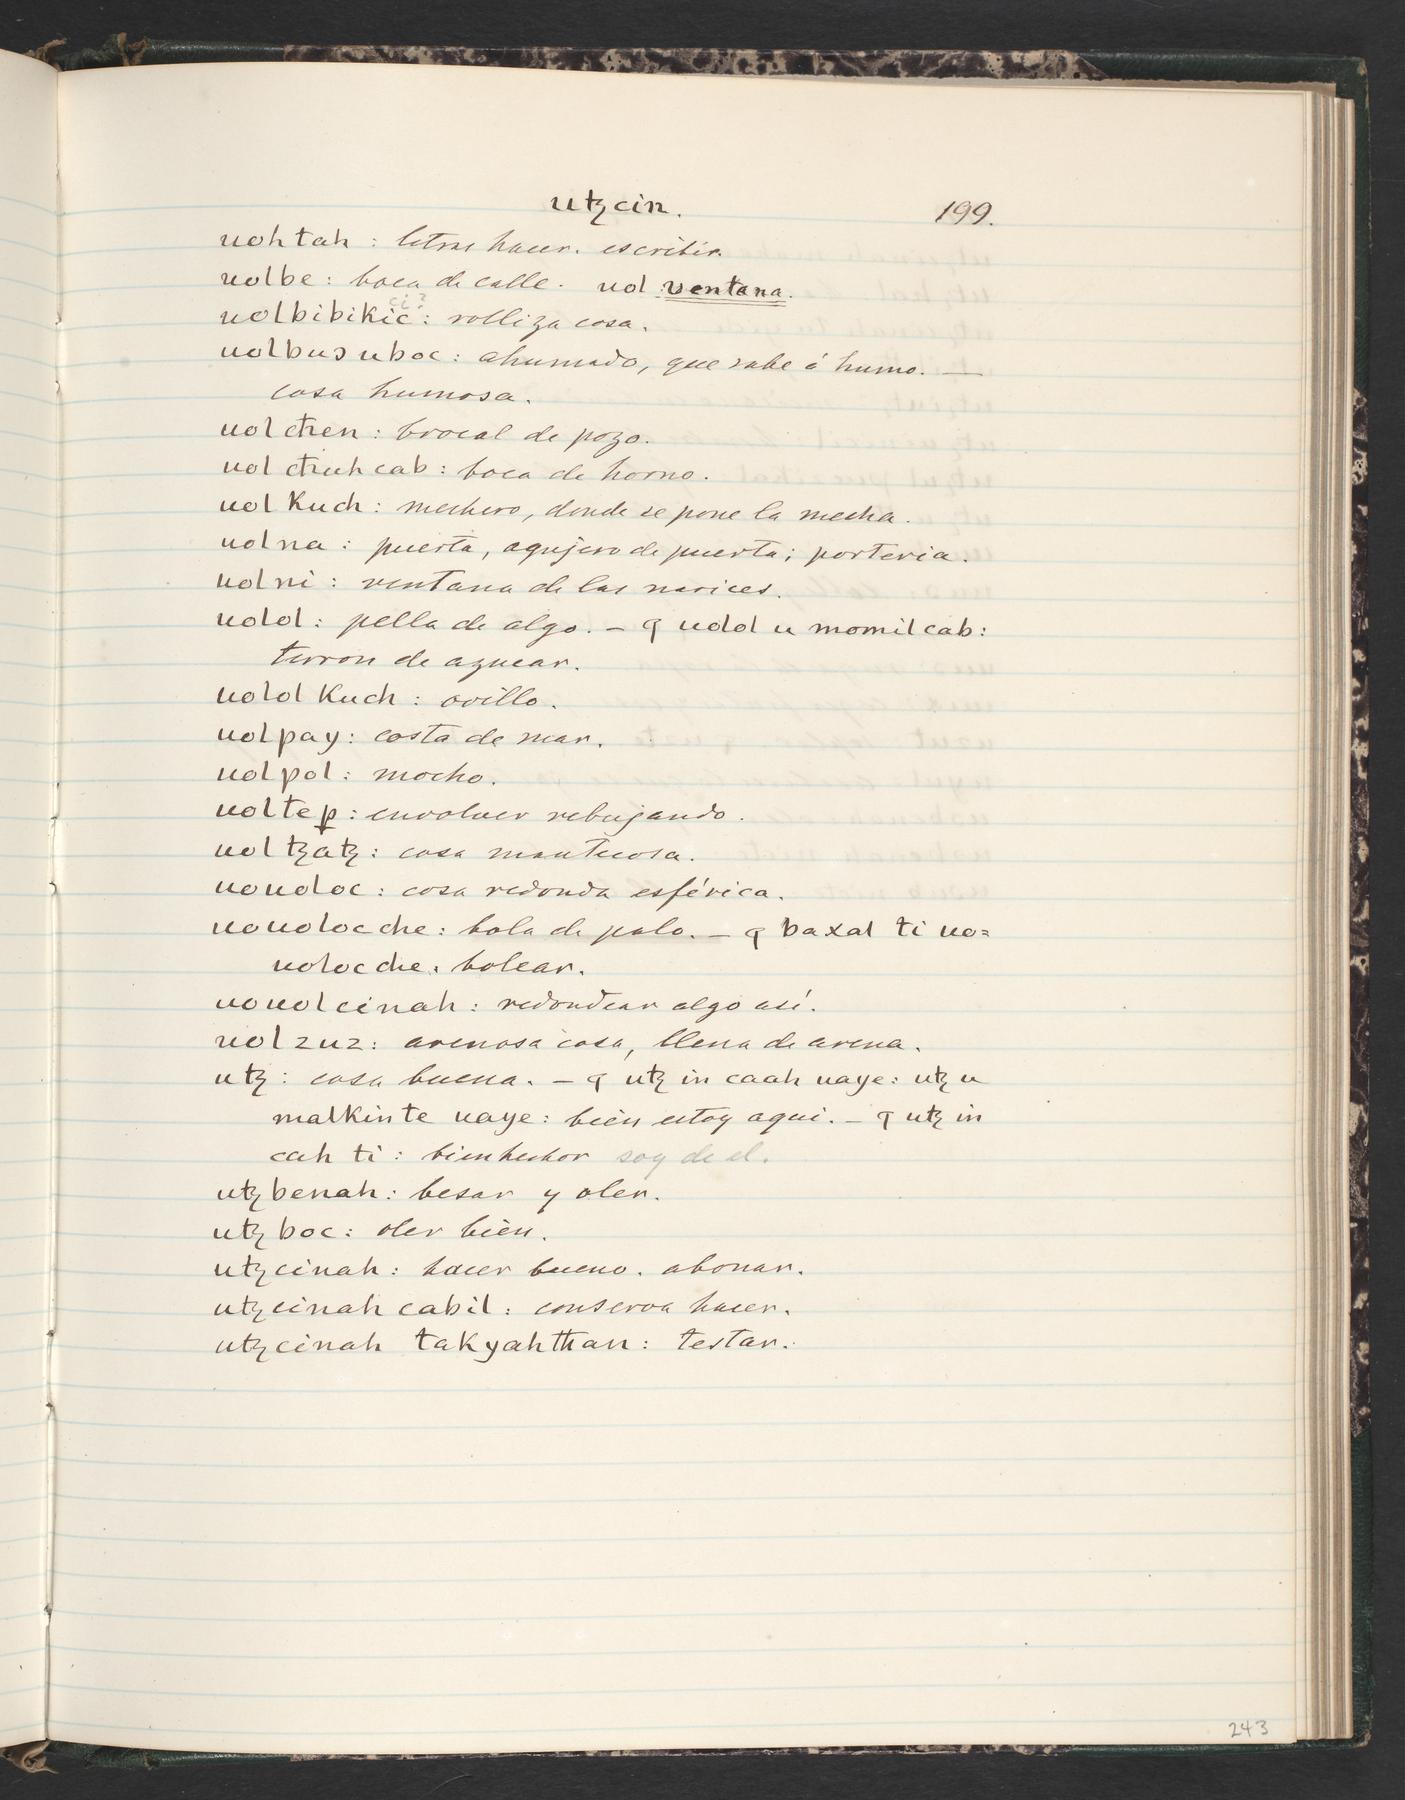 utꜩcin. 199.
uohtah : letras hacer. escribir.
uolbe : boca de calle. uol : ventana.
ci?
uolbibikic : rolliza cosa.
uolbuɔ uboc : ahumado, que sabe á humo. —
cosa humosa.
uol cħen : brocal de pozo.
uol cħuhcab : boca de horno.
uol kuch : mechero, donde se pone la mecha.
uolna : puerta, agujero de puerta; porteria.
uolni : ventana de las narices.
uolol : pella de algo. — ꝗ uolol u momilcab :
terron de azucar.
uolol kuch : ovillo.
uolpay : costa de mar.
uolpol : mocho.
uolteꝑ : envolver rebujando.
uol tꜩatꜩ : cosa mantecosa.
uouoloc : cosa redonda esférica.
uouoloc che : bola de palo. — ꝗ baxal ti uo=
uoloc che : bolear.
uouolcinah : redondear algo así.
uolzuz : arenosa cosa, llena de arena.
utꜩ : cosa buena. — ꝗ utꜩ in caah uaye : utꜩ u
malkinte uaye : bien estoy aqui. — ꝗ utꜩ in
cah ti : bienhechor soy de el.
utꜩbenah : besar y oler.
utꜩboc : oler bien.
utꜩcinah : hacer bueno. abonar.
utꜩcinah cabil : conserva hacer.
utꜩcinah takyahtħan : testar.
243